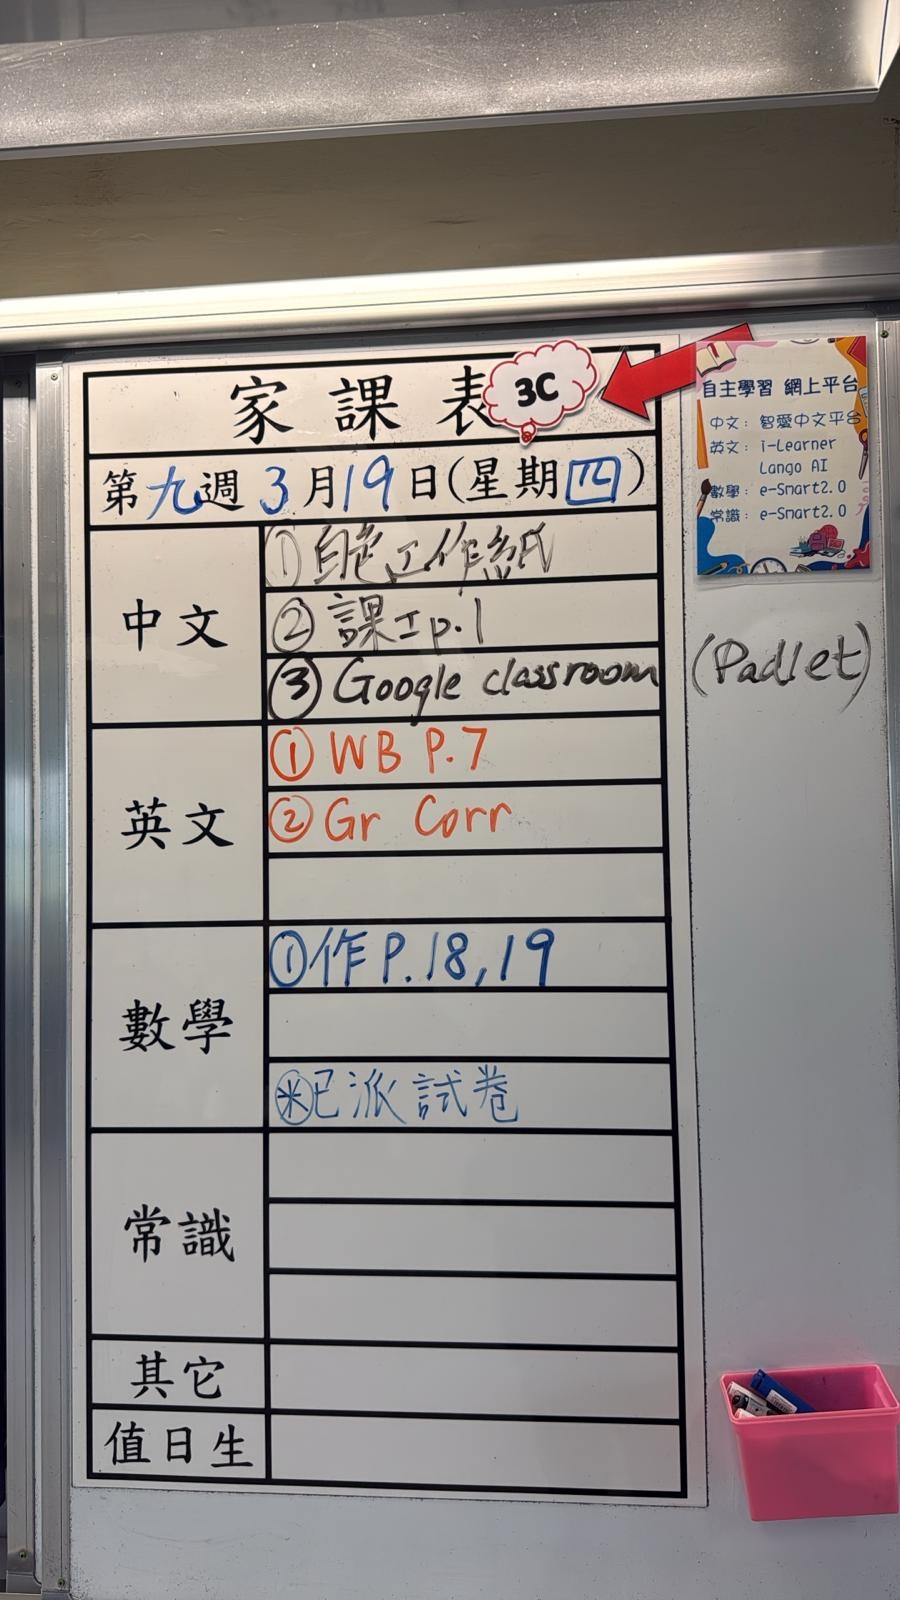 家課表
3C
第九週 3月19日(星期四)
中文
①自毫工作紙
②課工p.1
③Google classroom (Padlet)
英文
①WB P.7
②Gr Corr
數學
①作P.18,19
※已派試卷
常識
其它
值日生
自主學習 網上平台
中文：智愛中文平台
英文：i-Learner
Lango AI
數學：e-Smart2.0
常識：e-Smart2.0